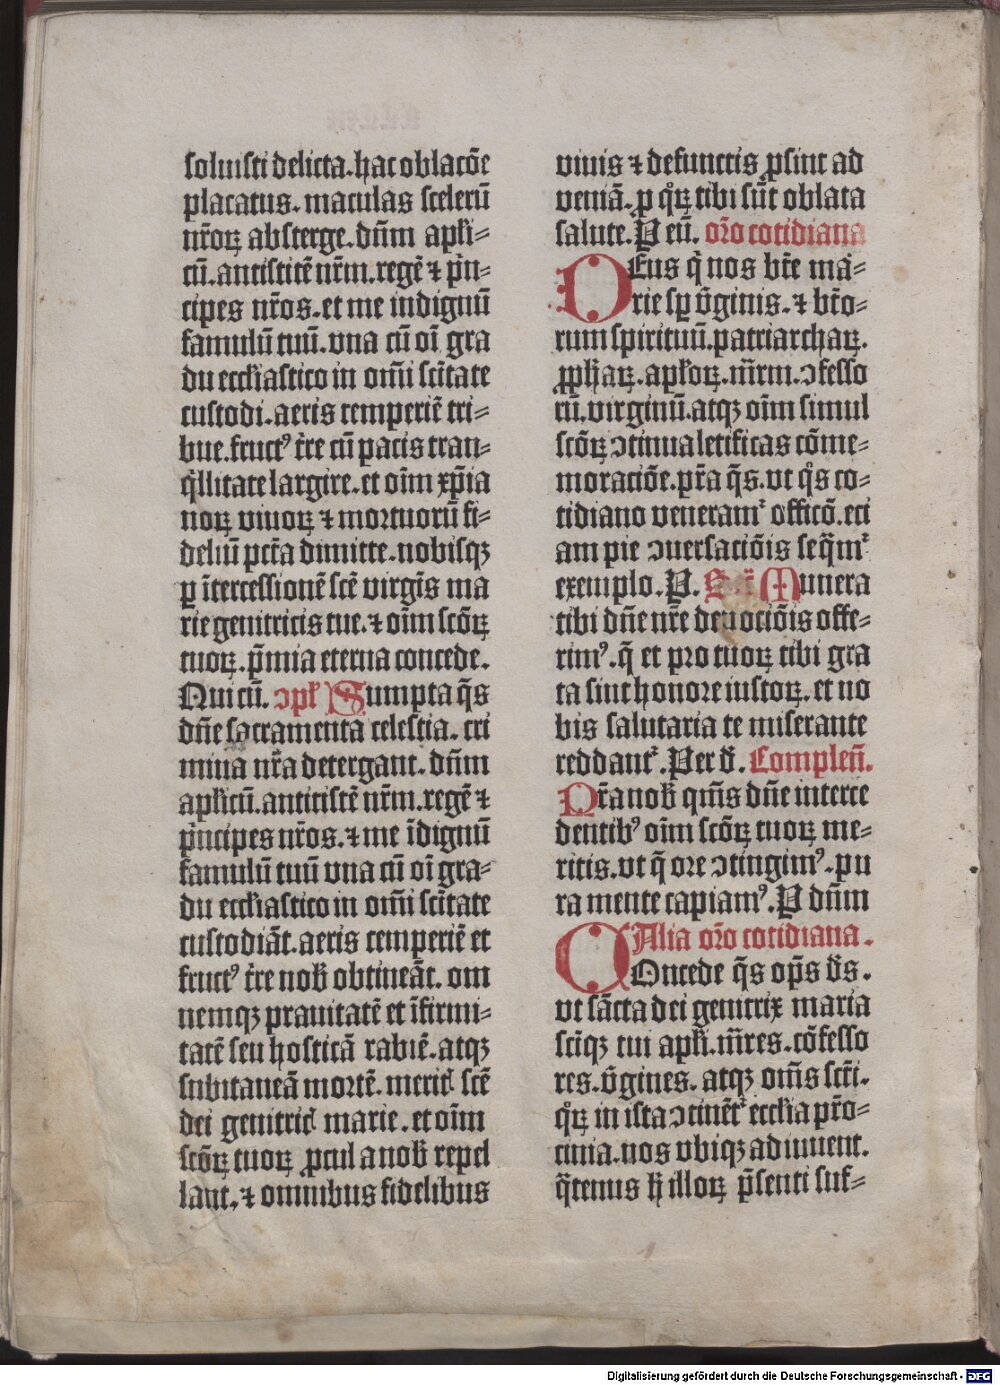 soluisti delicta. hac oblacōe
placatus. maculas scelerū
nr̄oꝝ absterge. dn̄m apl'i⸗
cū. antistitē nr̄m. regē ⁊ p̄n⸗
cipes nr̄os. et me indignū
famulū tuū. vna cū oī gra
du eccl'iastico in om̄i sc̄itate
custodi. aeris temperiē tri⸗
bue. fructꝰ tr̄re cū pacis tran⸗
q̇llitate largire. et oīm xp̄ia
noꝝ viuoꝝ ⁊ mortuorū fi⸗
deliū pctā dimitte. nobisqꝫ
ꝑ ītercessionē scē virgīs ma
rie genitricis tue. ⁊ oīm scōꝝ
tuoꝝ. p̄mia eterna concede.
Qui cū. ↄpl' Sumpta q̄s
dn̄e sacramenta celestia. cri
mina nr̄a detergant. dn̄m
apl'icū. antitistē nr̄m. regē ⁊
pṅcipes nr̄os. ⁊ me īdignū
famulū tuū vna cū oī gra⸗
du eccl'iastico in om̄i sc̄itate
custodiāt. aeris temperiē et
fructꝰ tr̄re nob̄ obtineāt. om
nemqꝫ prauitatē et īfirmi⸗
tatē seu hosticā rabiē. atqꝫ
subitaneā mortē. merit̄ scē
dei genitric̄ marie. et oīm
scōꝝ tuoꝝ ꝓcul a nob̄ repel
lant. ⁊ omnibus fidelibus
viuis ⁊ defunctis ꝓsint ad
veniā. ꝑ qͦꝝ tibi sūt oblata
salute. P eū. or̄o cotidiana
DEus q̇ nos bt̄e ma⸗
rie sꝑ v̄ginis. ⁊ bt̄o⸗
rum spirituū. patriarchaꝝ.
ꝓph'aꝝ. apl'oꝝ. mr̄m. ↄfesso
rū. virginū. atqꝫ oīm simul
scōꝝ ↄtinua letificas cōme⸗
moraciōe. pr̄a q̄s. vt qͦs co⸗
tidiano veneramᷣ officō. eci
am pie ↄuersaciōis seq̄mᷣ
exemplo. P. Munera
tibi dn̄e nr̄e deuociōis offe⸗
rimꝰ. q̄ et pro tuoꝝ tibi gra
ta sint honore iustoꝝ. et no
bis salutaria te miserante
reddantᷣ. Per d̄. Complen̄.
Pr̄a nob̄ qm̄s dn̄e interce
dentibꝰ oīm scōꝝ tuoꝝ me⸗
ritis. vt q̄ ore ↄtingimꝰ. pu
ra mente capiamꝰ. P dn̄m
Alia or̄o cotidiana.
COncede q̄s op̄s d̄s.
vt sācta dei genitrix maria
scīqꝫ tui apl'i. mr̄es. cōfesso
res. v̄gines. atqꝫ om̄s sc̄i.
qͦꝝ in ista ↄtinētᷣ eccl'ia pr̄o⸗
cinia. nos vbiqꝫ adiuuent.
q̄tenus h̄ illoꝝ p̄senti suf⸗
Digitalisierung gefördert durch die Deutsche Forschungsgemeinschaft - DFG